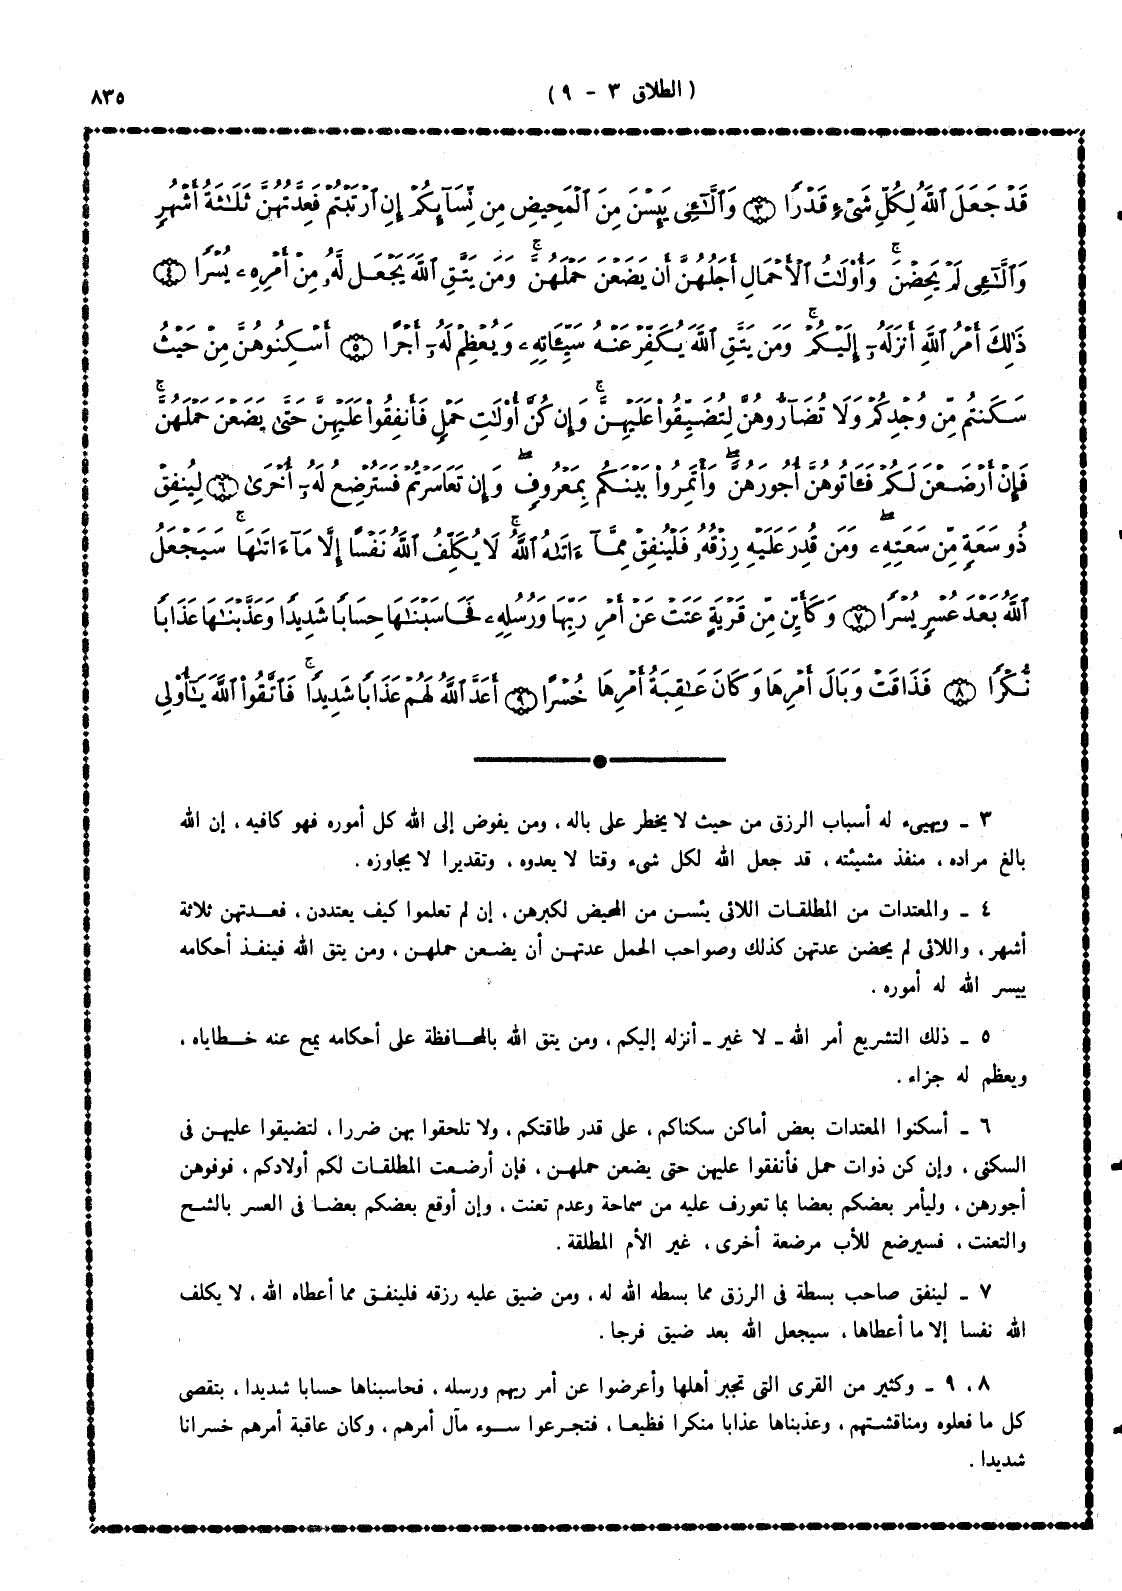 ( الطلاق ٣ - ٩ )
٨٣٥
قَدْ جَعَلَ ٱللَّهُ لِكُلِّ شَىْءٍ قَدْرًا ٣ وَٱلَّٰٓـِٔى يَئِسْنَ مِنَ ٱلْمَحِيضِ مِن نِّسَآئِكُمْ إِنِ ٱرْتَبْتُمْ فَعِدَّتُهُنَّ ثَلَٰثَةُ أَشْهُرٍ
وَٱلَّٰٓـِٔى لَمْ يَحِضْنَ ۚ وَأُو۟لَٰتُ ٱلْأَحْمَالِ أَجَلُهُنَّ أَن يَضَعْنَ حَمْلَهُنَّ ۚ وَمَن يَتَّقِ ٱللَّهَ يَجْعَل لَّهُۥ مِنْ أَمْرِهِۦ يُسْرًا ٤
ذَٰلِكَ أَمْرُ ٱللَّهِ أَنزَلَهُۥٓ إِلَيْكُمْ ۚ وَمَن يَتَّقِ ٱللَّهَ يُكَفِّرْ عَنْهُ سَيِّـَٔاتِهِۦ وَيُعْظِمْ لَهُۥٓ أَجْرًا ٥ أَسْكِنُوهُنَّ مِنْ حَيْثُ
سَكَنتُم مِّن وُجْدِكُمْ وَلَا تُضَآرُّوهُنَّ لِتُضَيِّقُوا۟ عَلَيْهِنَّ ۚ وَإِن كُنَّ أُو۟لَٰتِ حَمْلٍ فَأَنفِقُوا۟ عَلَيْهِنَّ حَتَّىٰ يَضَعْنَ حَمْلَهُنَّ ۚ
فَإِنْ أَرْضَعْنَ لَكُمْ فَـَٔاتُوهُنَّ أُجُورَهُنَّ ۖ وَأْتَمِرُوا۟ بَيْنَكُم بِمَعْرُوفٍ ۖ وَإِن تَعَاسَرْتُمْ فَسَتُرْضِعُ لَهُۥٓ أُخْرَىٰ ٦ لِيُنفِقْ
ذُو سَعَةٍ مِّن سَعَتِهِۦ ۖ وَمَن قُدِرَ عَلَيْهِ رِزْقُهُۥ فَلْيُنفِقْ مِمَّآ ءَاتَىٰهُ ٱللَّهُ ۚ لَا يُكَلِّفُ ٱللَّهُ نَفْسًا إِلَّا مَآ ءَاتَىٰهَا ۚ سَيَجْعَلُ
ٱللَّهُ بَعْدَ عُسْرٍ يُسْرًا ٧ وَكَأَيِّن مِّن قَرْيَةٍ عَتَتْ عَنْ أَمْرِ رَبِّهَا وَرُسُلِهِۦ فَحَاسَبْنَٰهَا حِسَابًا شَدِيدًا وَعَذَّبْنَٰهَا عَذَابًا
نُّكْرًا ٨ فَذَاقَتْ وَبَالَ أَمْرِهَا وَكَانَ عَٰقِبَةُ أَمْرِهَا خُسْرًا ٩ أَعَدَّ ٱللَّهُ لَهُمْ عَذَابًا شَدِيدًا ۖ فَٱتَّقُوا۟ ٱللَّهَ يَٰٓأُو۟لِى
٣ ـ ويهيىء له أسباب الرزق من حيث لا يخطر على باله ، ومن يفوض إلى الله كل أموره فهو كافيه ، إن الله
بالغ مراده ، منفذ مشيئته ، قد جعل الله لكل شىء وقتا لا يعدوه ، وتقديرا لا يجاوزه .
٤ ـ والمعتدات من المطلقات اللائى يئسن من المحيض لكبرهن ، إن لم تعلموا كيف يعتددن ، فعدتهن ثلاثة
أشهر ، واللائى لم يحضن عدتهن كذلك وصواحب الحمل عدتهن أن يضعن حملهن ، ومن يتق الله فينفذ أحكامه
ييسر الله له أموره .
٥ ـ ذلك التشريع أمر الله ـ لا غير ـ أنزله إليكم ، ومن يتق الله بالمحافظة على أحكامه يمح عنه خطاياه ،
ويعظم له جزاء .
٦ ـ أسكنوا المعتدات بعض أماكن سكناكم ، على قدر طاقتكم ، ولا تلحقوا بهن ضررا ، لتضيقوا عليهن فى
السكنى ، وإن كن ذوات حمل فأنفقوا عليهن حتى يضعن حملهن ، فإن أرضعت المطلقات لكم أولادكم ، فوفوهن
أجورهن ، وليأمر بعضكم بعضا بما تعورف عليه من سماحة وعدم تعنت ، وإن أوقع بعضكم بعضا فى العسر بالشح
والتعنت ، فسيرضع للأب مرضعة أخرى ، غير الأم المطلقة .
٧ ـ لينفق صاحب بسطة فى الرزق مما بسطه الله له ، ومن ضيق عليه رزقه فلينفق مما أعطاه الله ، لا يكلف
الله نفسا إلا ما أعطاها ، سيجعل الله بعد ضيق فرجا .
٨ ، ٩ ـ وكثير من القرى التى تجبر أهلها وأعرضوا عن أمر ربهم ورسله ، فحاسبناها حسابا شديدا ، بتقصى
كل ما فعلوه ومناقشتهم ، وعذبناها عذابا منكرا فظيعا ، فتجرعوا سوء مآل أمرهم ، وكان عاقبة أمرهم خسرانا
شديدا .